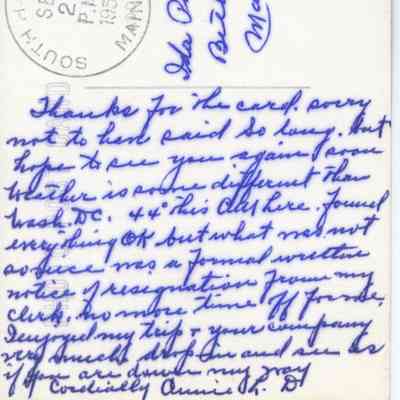 SOUTH P
SE
2
P.M
195
MAIN
Ida P
Bit
Ma
Thanks for the card. sorry
not to have said So long. but
hope to see you again soon
Weather is some different than
Wash. D.C. 44° this AM here. Found
everything OK but what was not
so nice was a formal written
notice of resignation from my
clerk. no more time off for me.
I enjoyed my trip + your company
very much drop in and see us
if you are down my way
Cordially Annie L. D